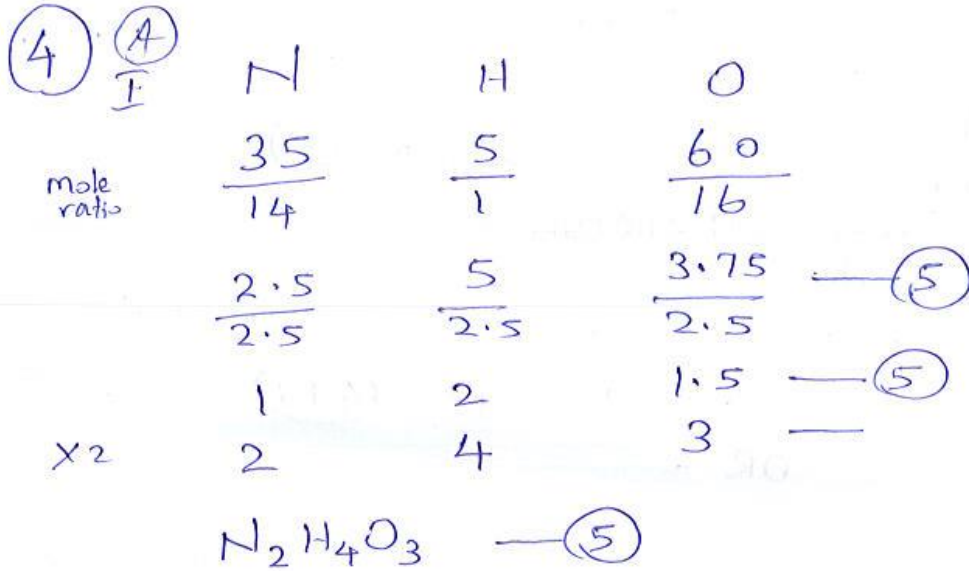 4 A
I N H O
mole ratio 35/14 5/1 60/16
2.5/2.5 5/2.5 3.75/2.5 — 5
1 2 1.5 — 5
×2 2 4 3 —
N₂H₄O₃ — 5